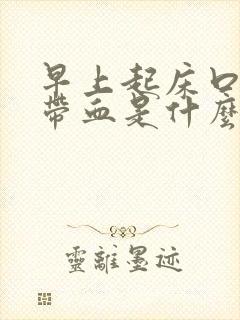 早上起床口
帶血是什麼
靈離墨迹